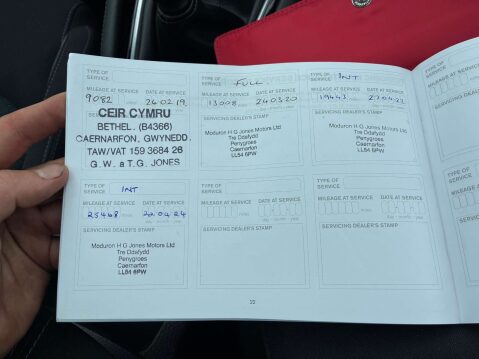 TYPE OF
SERVICE
MILEAGE AT SERVICE DATE AT SERVICE
9082 26.02.19
CEIR CYMRU
BETHEL. (B4366)
CAERNARFON, GWYNEDD.
TAW/VAT 159 3684 26
G.W. a T.G. JONES
TYPE OF
SERVICE
FULL
MILEAGE AT SERVICE DATE AT SERVICE
13008 miles 24.03.20
SERVICING DEALER'S STAMP
Moduron H G Jones Motors Ltd
Tre Ddafydd
Penygroes
Caernarfon
LL54 6PW
TYPE OF
SERVICE
INT
MILEAGE AT SERVICE DATE AT SERVICE
19443 miles
SERVICING DEALER'S STAMP
Moduron H G Jones Motors Ltd
Tre Ddafydd
Penygroes
Caernarfon
LL54 6PW
TYPE OF
SERVICE
INT
MILEAGE AT SERVICE DATE AT SERVICE
25468 miles 22.04.24
day month year
SERVICING DEALER'S STAMP
Moduron H G Jones Motors Ltd
Tre Ddafydd
Penygroes
Caernarfon
LL54 6PW
TYPE OF
SERVICE
MILEAGE AT SERVICE DATE AT SERVICE
miles
day month year
SERVICING DEALER'S STAMP
TYPE OF
SERVICE
MILEAGE AT SERVICE DATE AT SERVICE
miles
day month year
SERVICING DEALER'S STAMP
TYPE OF
SERVICE
MILEAGE AT SERVICE
SERVICING DEALER'S
TYPE OF
SERVICE
MILEAGE AT SERVICE
SERVICING DEALER'S